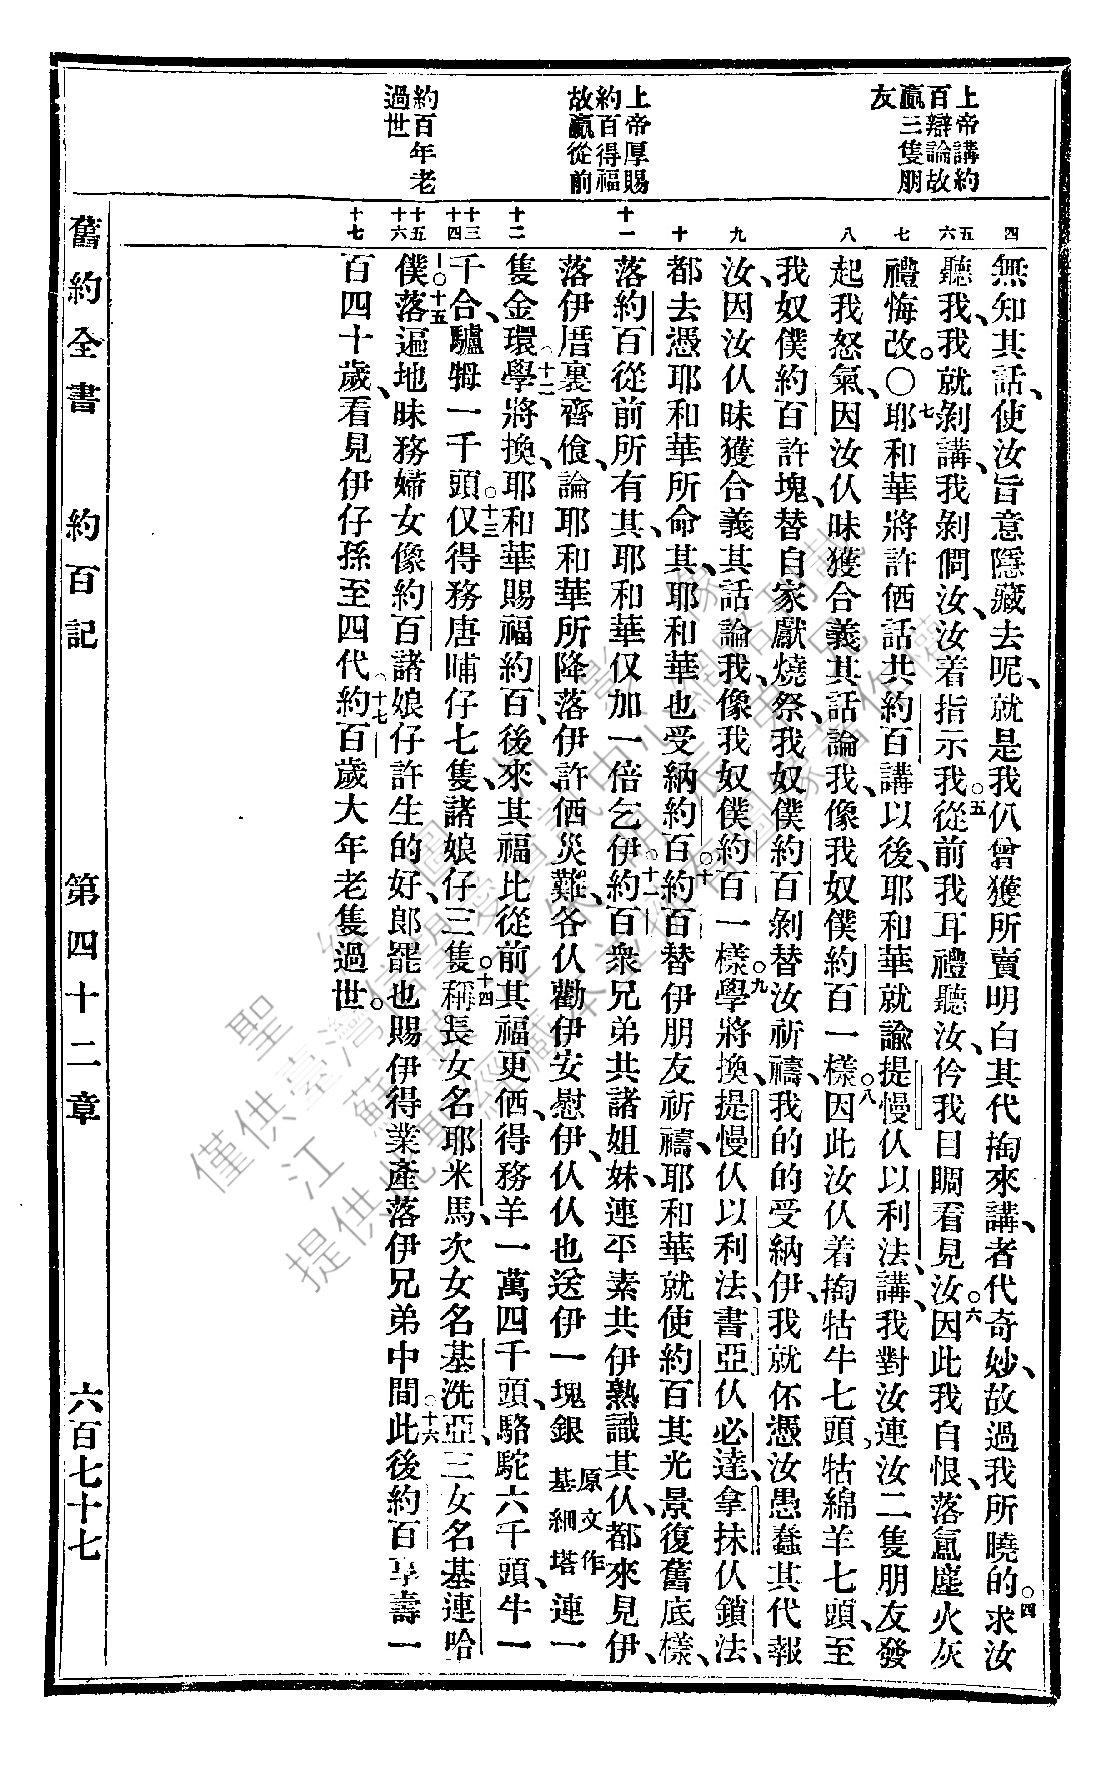 上帝講約
百辯論故
贏三隻朋
友
上帝厚賜
約百得福
故贏從前
約百年老
過世
四
五
六
七
八
九
十
十一
十二
十三
十四
十五
十六
十七
無知其話、使汝旨意隱藏去呢、就是我仈曾獲所賣明白其代掏來講、者代奇妙、故過我所曉的。○四求汝
聽我、我就剝講、我剝問汝、汝着指示我。○五從前我耳禮聽汝、仱我目睭看見汝。○六因此我自恨、落氳塵火灰
禮悔改。○七耶和華將許価話共約百講以後、耶和華就諭提慢仈以利法講、我對汝連汝二隻朋友發
起我怒氣、因汝仈昧獲合義其話論我、像我奴僕約百一樣。○八因此汝仈着掏牯牛七頭、牯綿羊七頭、至
我奴僕約百許塊、替自家獻燒祭、我奴僕約百剝替汝祈禱、我的的受納伊、我就伓憑汝愚蠢其代報
汝、因汝仈昧獲合義其話論我、像我奴僕約百一樣。○九學將換、提慢仈以利法、書亞仈必達、拿抹仈鎖法、
都去憑耶和華所命其、耶和華也受納約百。○十約百替伊朋友祈禱、耶和華就使約百其光景復舊底樣、
落約百從前所有其、耶和華仅加一倍乞伊。○十一約百衆兄弟共諸姐妹、連平素共伊熟識其仈、都來見伊、
落伊厝裏齊飱、論耶和華所降落伊許価災難、各仈勸伊安慰伊、仈仈也送伊一塊銀 原文作基綑塔 連一
隻金環○十二學將換、耶和華賜福約百、後來其福比從前其福更価、得務羊一萬四千頭、駱駝六千頭、牛一
千合、驢牳一千頭。○十三仅得務唐晡仔七隻、諸娘仔三隻。○十四稱長女名耶米馬、次女名基洗亞、三女名基連哈
○十五僕落遍地昧務婦女像約百諸娘仔許生的好、郎罷也賜伊得業產落伊兄弟中間○十六此後約百享壽一
百四十歲、看見伊仔孫至四代○十七約百歲大年老隻過世。
舊約全書 約百記 第四十二章 六百七十七